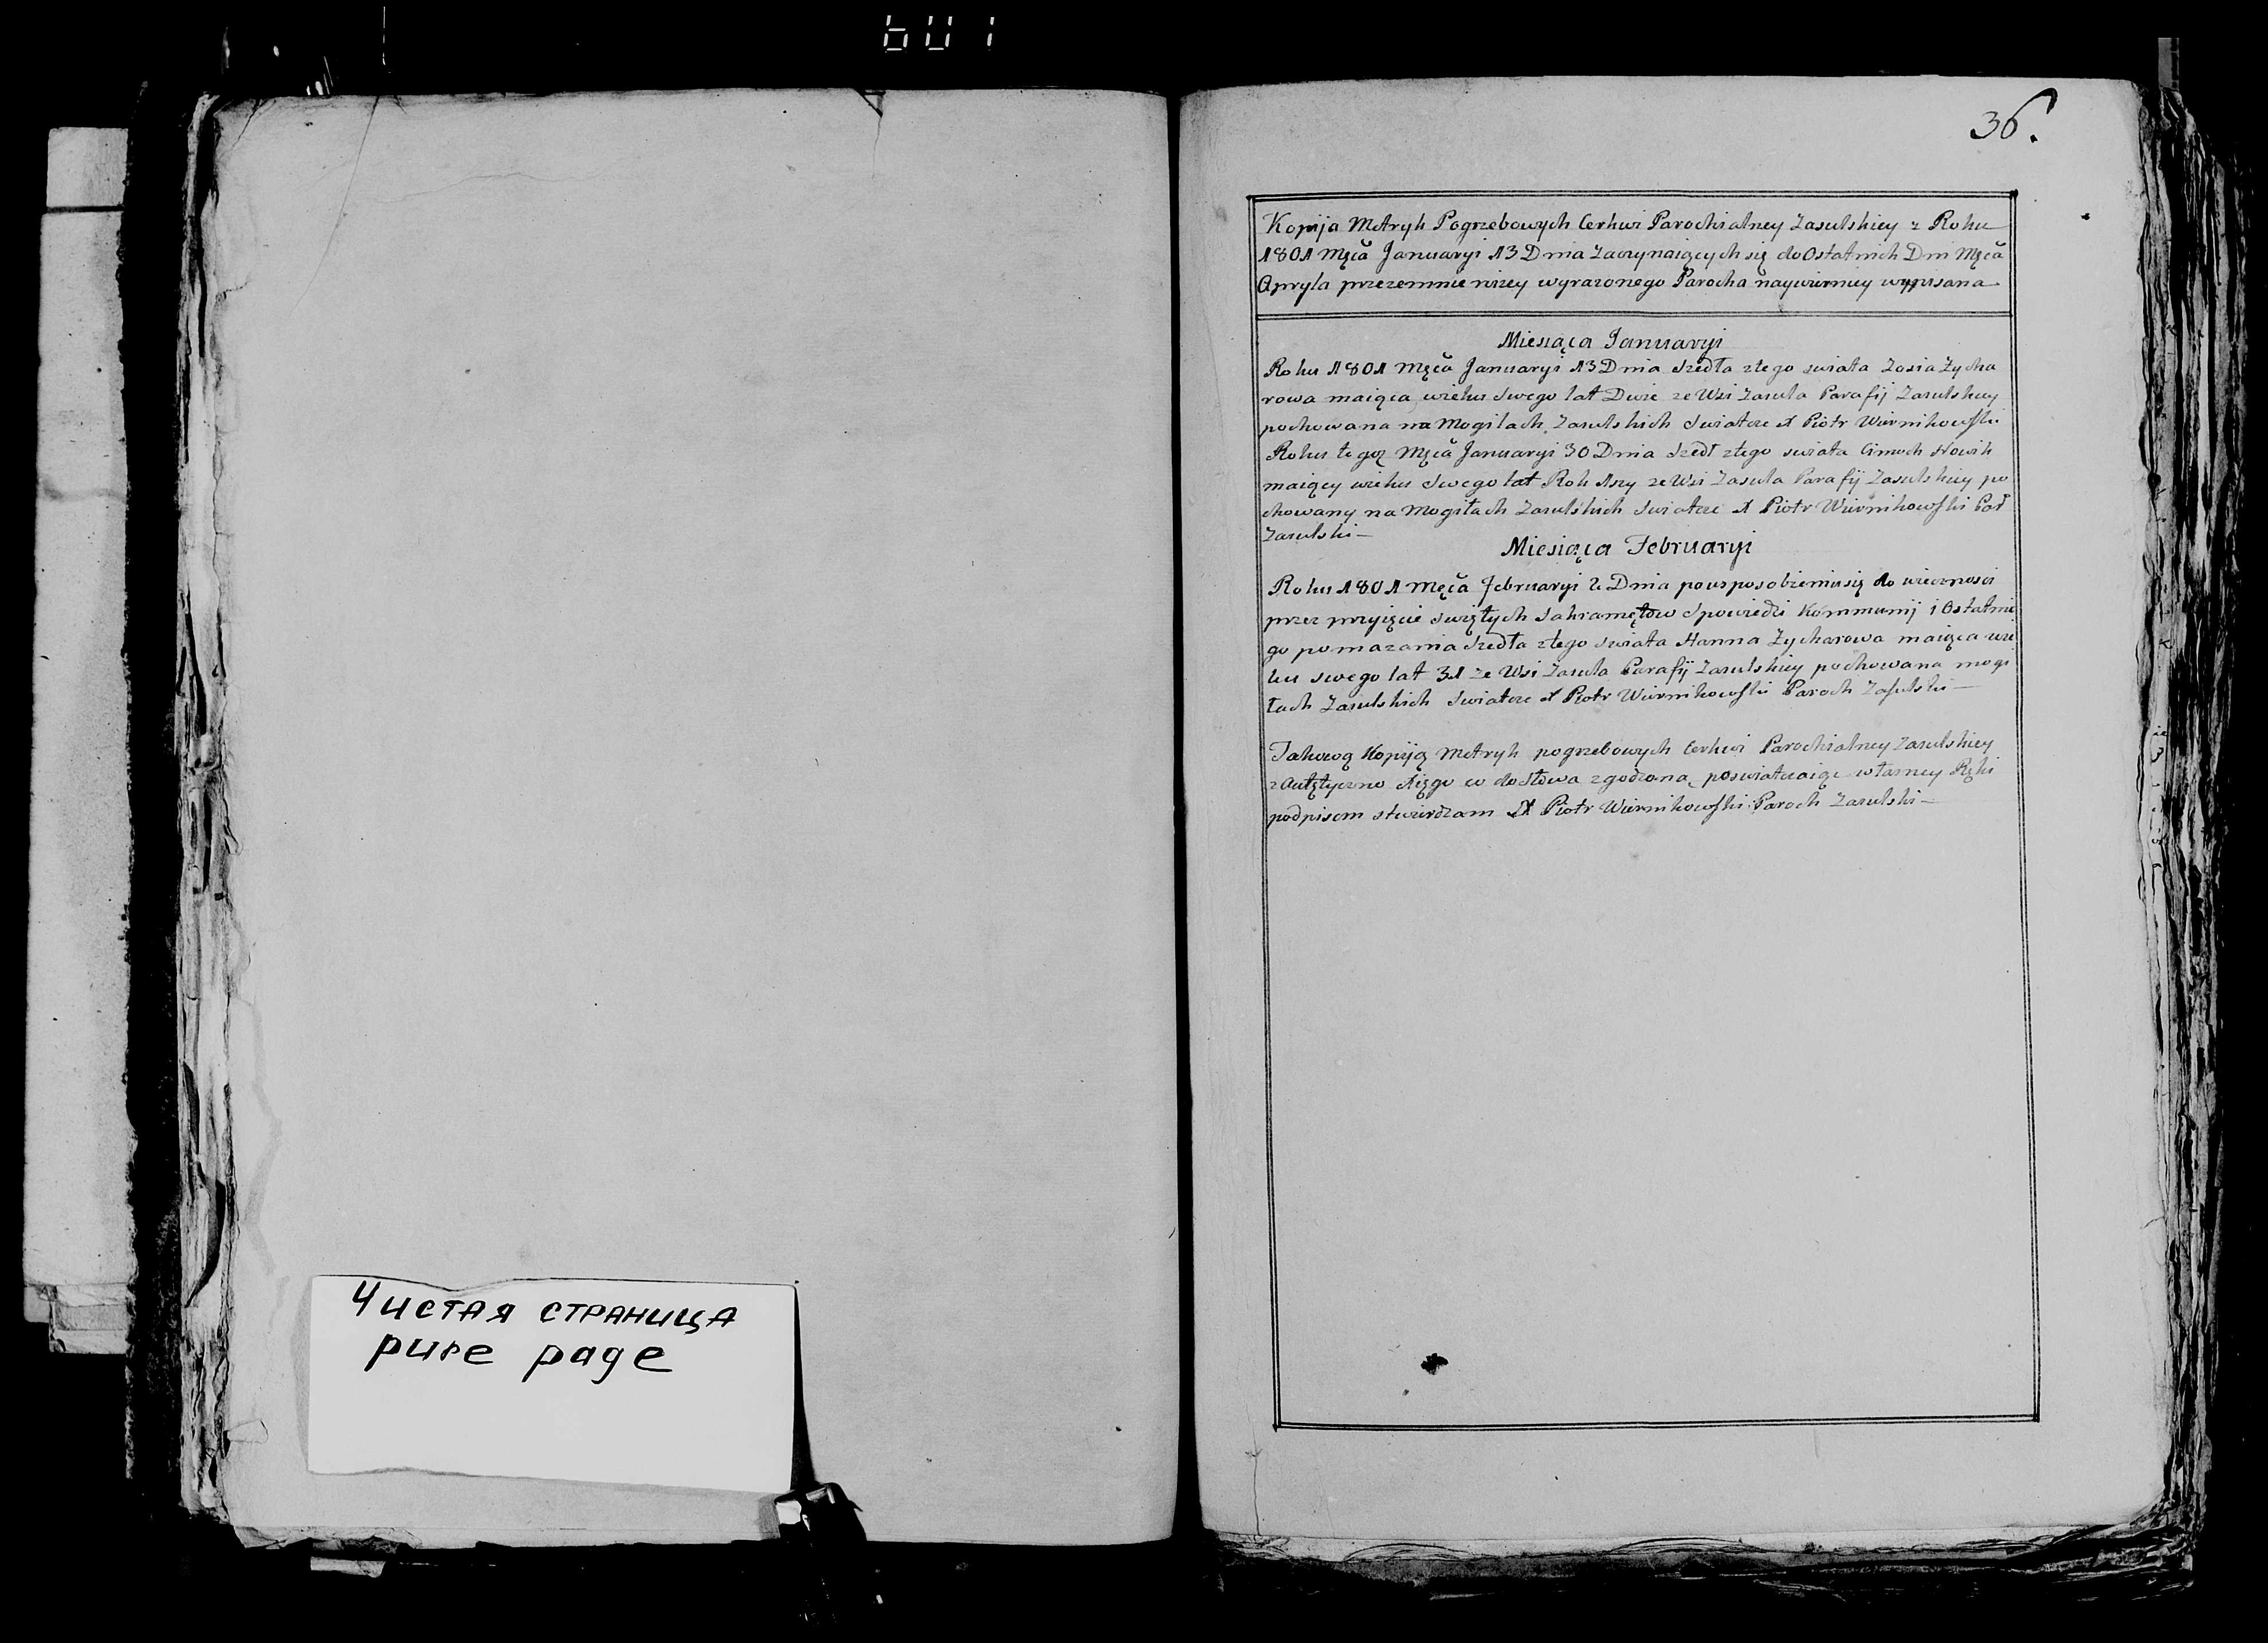 601
36.
Kopija Metryk Pogrzebowych Cerkwi Parochialney Zasulskiey z Roku
1801 Męca Januaryi 13 Dnia Zaczynaiących się do Ostatnich Dni Męca
Apryla przezemnie niżey wyrazonego Parocha naywierniey wypisana
Miesiąca Januaryi
Roku 1801 Męca Januaryi 13 Dnia Szedła z tego swiata Zosia Zycha
rowa maiąca wieku Swego lat Dwie ze Wsi Zasula Parafij Zasulskiey
pochowana na Mogilach Zasulskich Swiatcze X Piotr Wiernikowski
Roku tegoz Męca Januaryi 30 Dnia Szedł z tego swiata Cimoch Nowik
maiący wieku Swego lat Rok 1szy ze Wsi Zasula Parafij Zasulskiey po
chowany na Mogiłach Zasulskich Swiatcze X Piotr Wiernikowski Par
Zasulski —
Miesiąca Februaryi
Roku 1801 Męca Februaryi 2 Dnia po usposobieniu się do wiecznosci
przez przyięcie Swiętych Sakramętow Spowiedzi Kommunij i Ostatnie
go pomazania Szedła z tego Swiata Hanna Zycharowa maiąca wie
ku swego lat 31 ze Wsi Zasula Parafij Zasulskiey pochowana mogi
łach Zasulskich Swiatcze X Piotr Wiernikowski Paroch Zasulski —
Takową Kopiją Metryk pogrzebowych Cerkwi Parochialney Zasulskiey
z Autętyczno Xięgo co do Słowa zgodzoną poswiatczaiąc własney Ręki
podpisem stwierdzam X Piotr Wiernikowski Paroch Zasulski —
Чистая страница
pure page